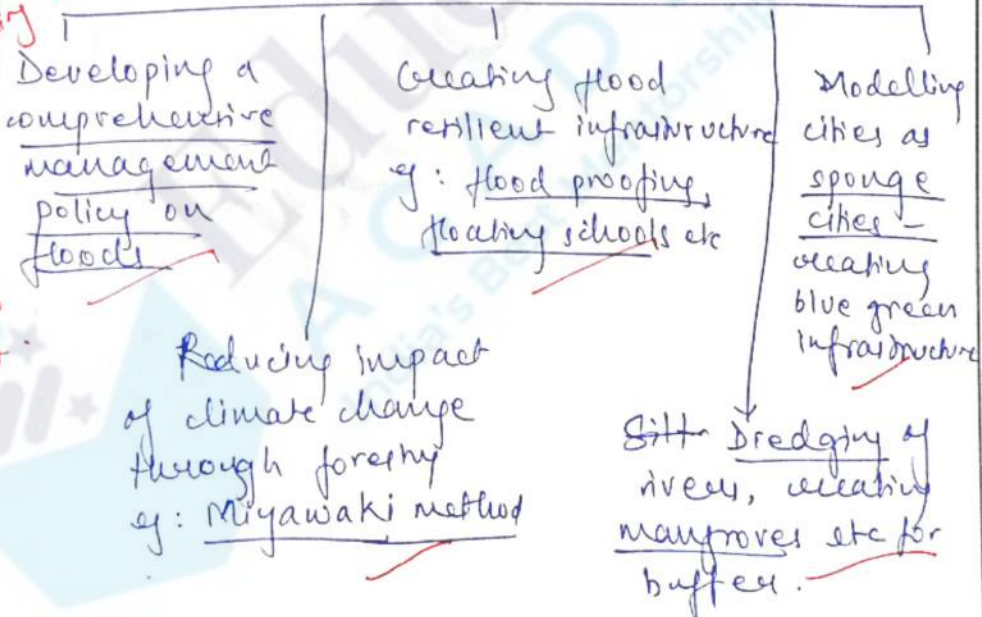 Developing a
comprehensive
management
policy on
floods
Creating flood
resilient infrastructure
eg: flood proofing,
floating schools etc
Modelling
cities as
sponge
cities -
creating
blue green
infrastructure
Reducing impact
of climate change
through forestry
eg: Miyawaki method
Silt Dredging of
rivers, creating
mangroves etc for
buffer.
India's Best Mentorship